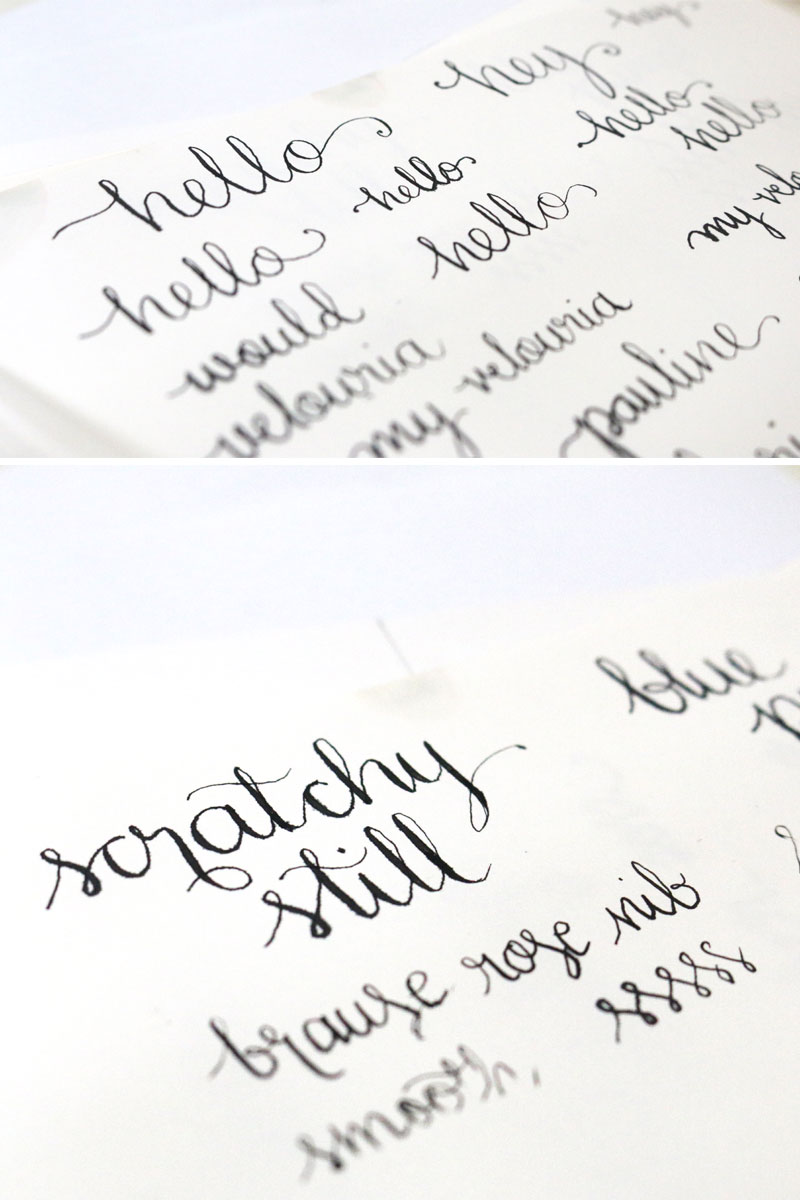 hey hey
hello hello hello
hello
hello hello
my
would
velouria my velouria
pauline
blue
scratchy
still
brause rose nib
sssss
smooth